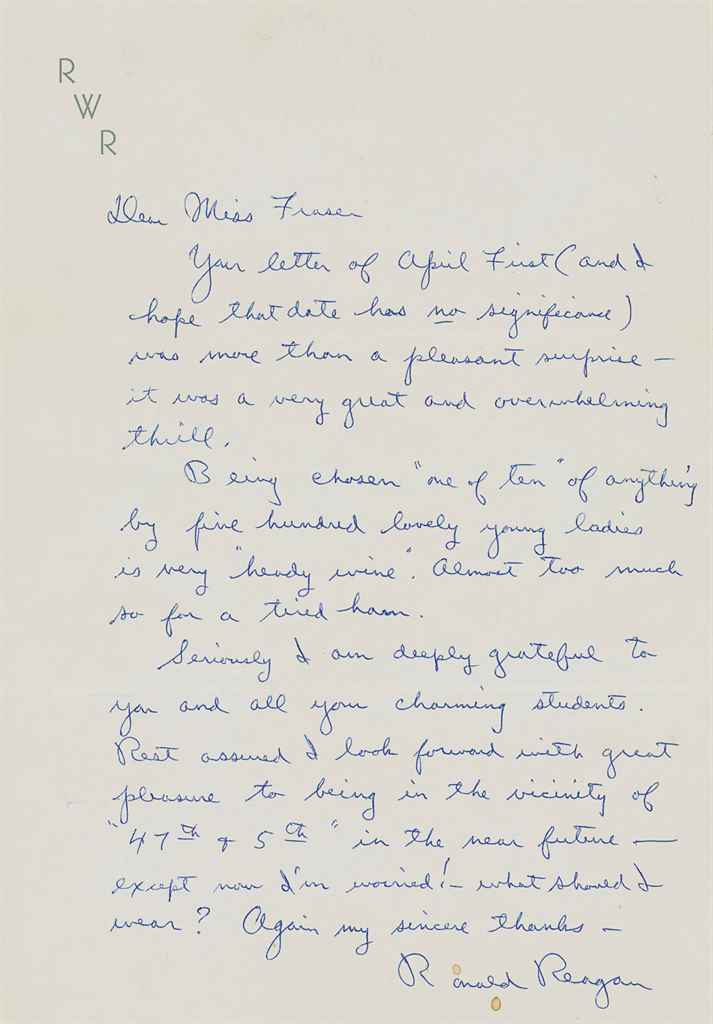 R
W
R
Dear Miss Fraser
Your letter of April First (and I
hope that date has no significance)
was more than a pleasant surprise —
it was a very great and overwhelming
thrill.
Being chosen "one of ten" of anything
by five hundred lovely young ladies
is very "heady wine". Almost too much
so for a tired ham.
Seriously I am deeply grateful to
you and all your charming students.
Rest assured I look forward with great
pleasure to being in the vicinity of
"47th & 5th" in the near future —
except now I'm worried! — what should I
wear? Again my sincere thanks —
Ronald Reagan